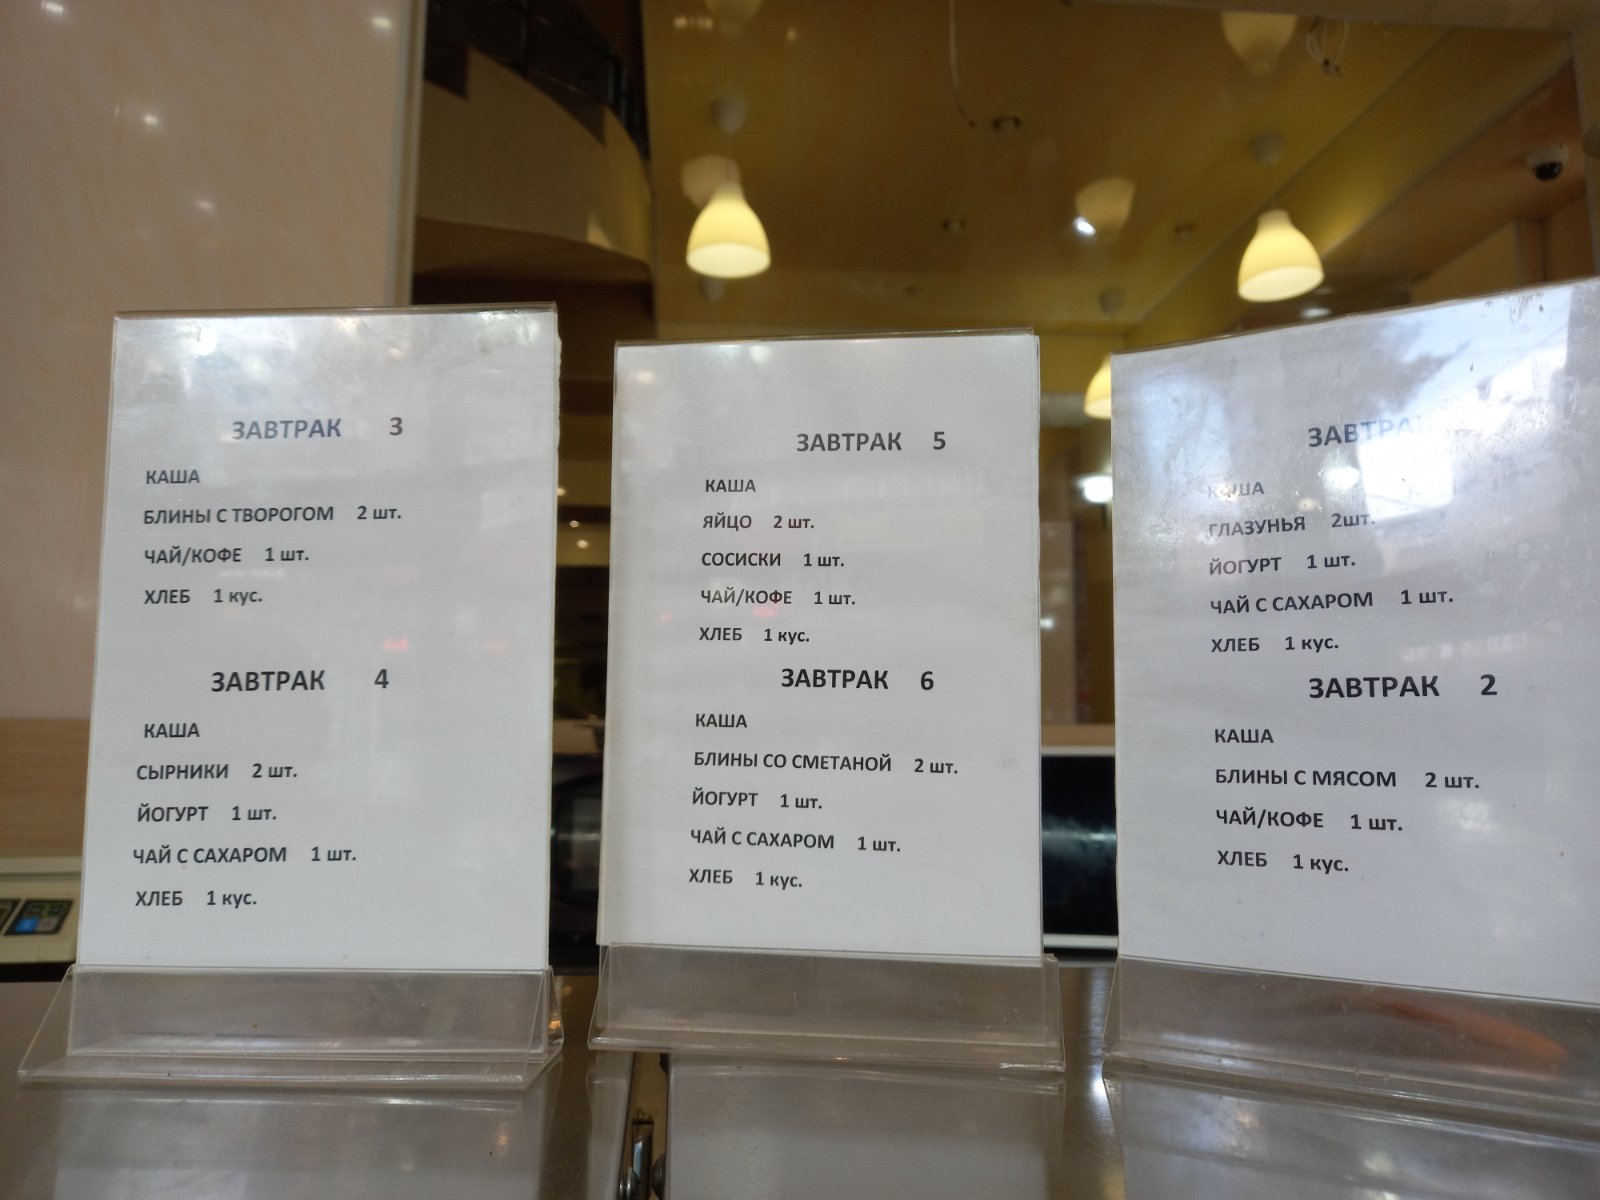 ЗАВТРАК 3
КАША
БЛИНЫ С ТВОРОГОМ 2 шт.
ЧАЙ/КОФЕ 1 шт.
ХЛЕБ 1 кус.
ЗАВТРАК 4
КАША
СЫРНИКИ 2 шт.
ЙОГУРТ 1 шт.
ЧАЙ С САХАРОМ 1 шт.
ХЛЕБ 1 кус.
ЗАВТРАК 5
КАША
ЯЙЦО 2 шт.
СОСИСКИ 1 шт.
ЧАЙ/КОФЕ 1 шт.
ХЛЕБ 1 кус.
ЗАВТРАК 6
КАША
БЛИНЫ СО СМЕТАНОЙ 2 шт.
ЙОГУРТ 1 шт.
ЧАЙ С САХАРОМ 1 шт.
ХЛЕБ 1 кус.
ЗАВТРАК
КАША
ГЛАЗУНЬЯ 2шт.
ЙОГУРТ 1 шт.
ЧАЙ С САХАРОМ 1 шт.
ХЛЕБ 1 кус.
ЗАВТРАК 2
КАША
БЛИНЫ С МЯСОМ 2 шт.
ЧАЙ/КОФЕ 1 шт.
ХЛЕБ 1 кус.